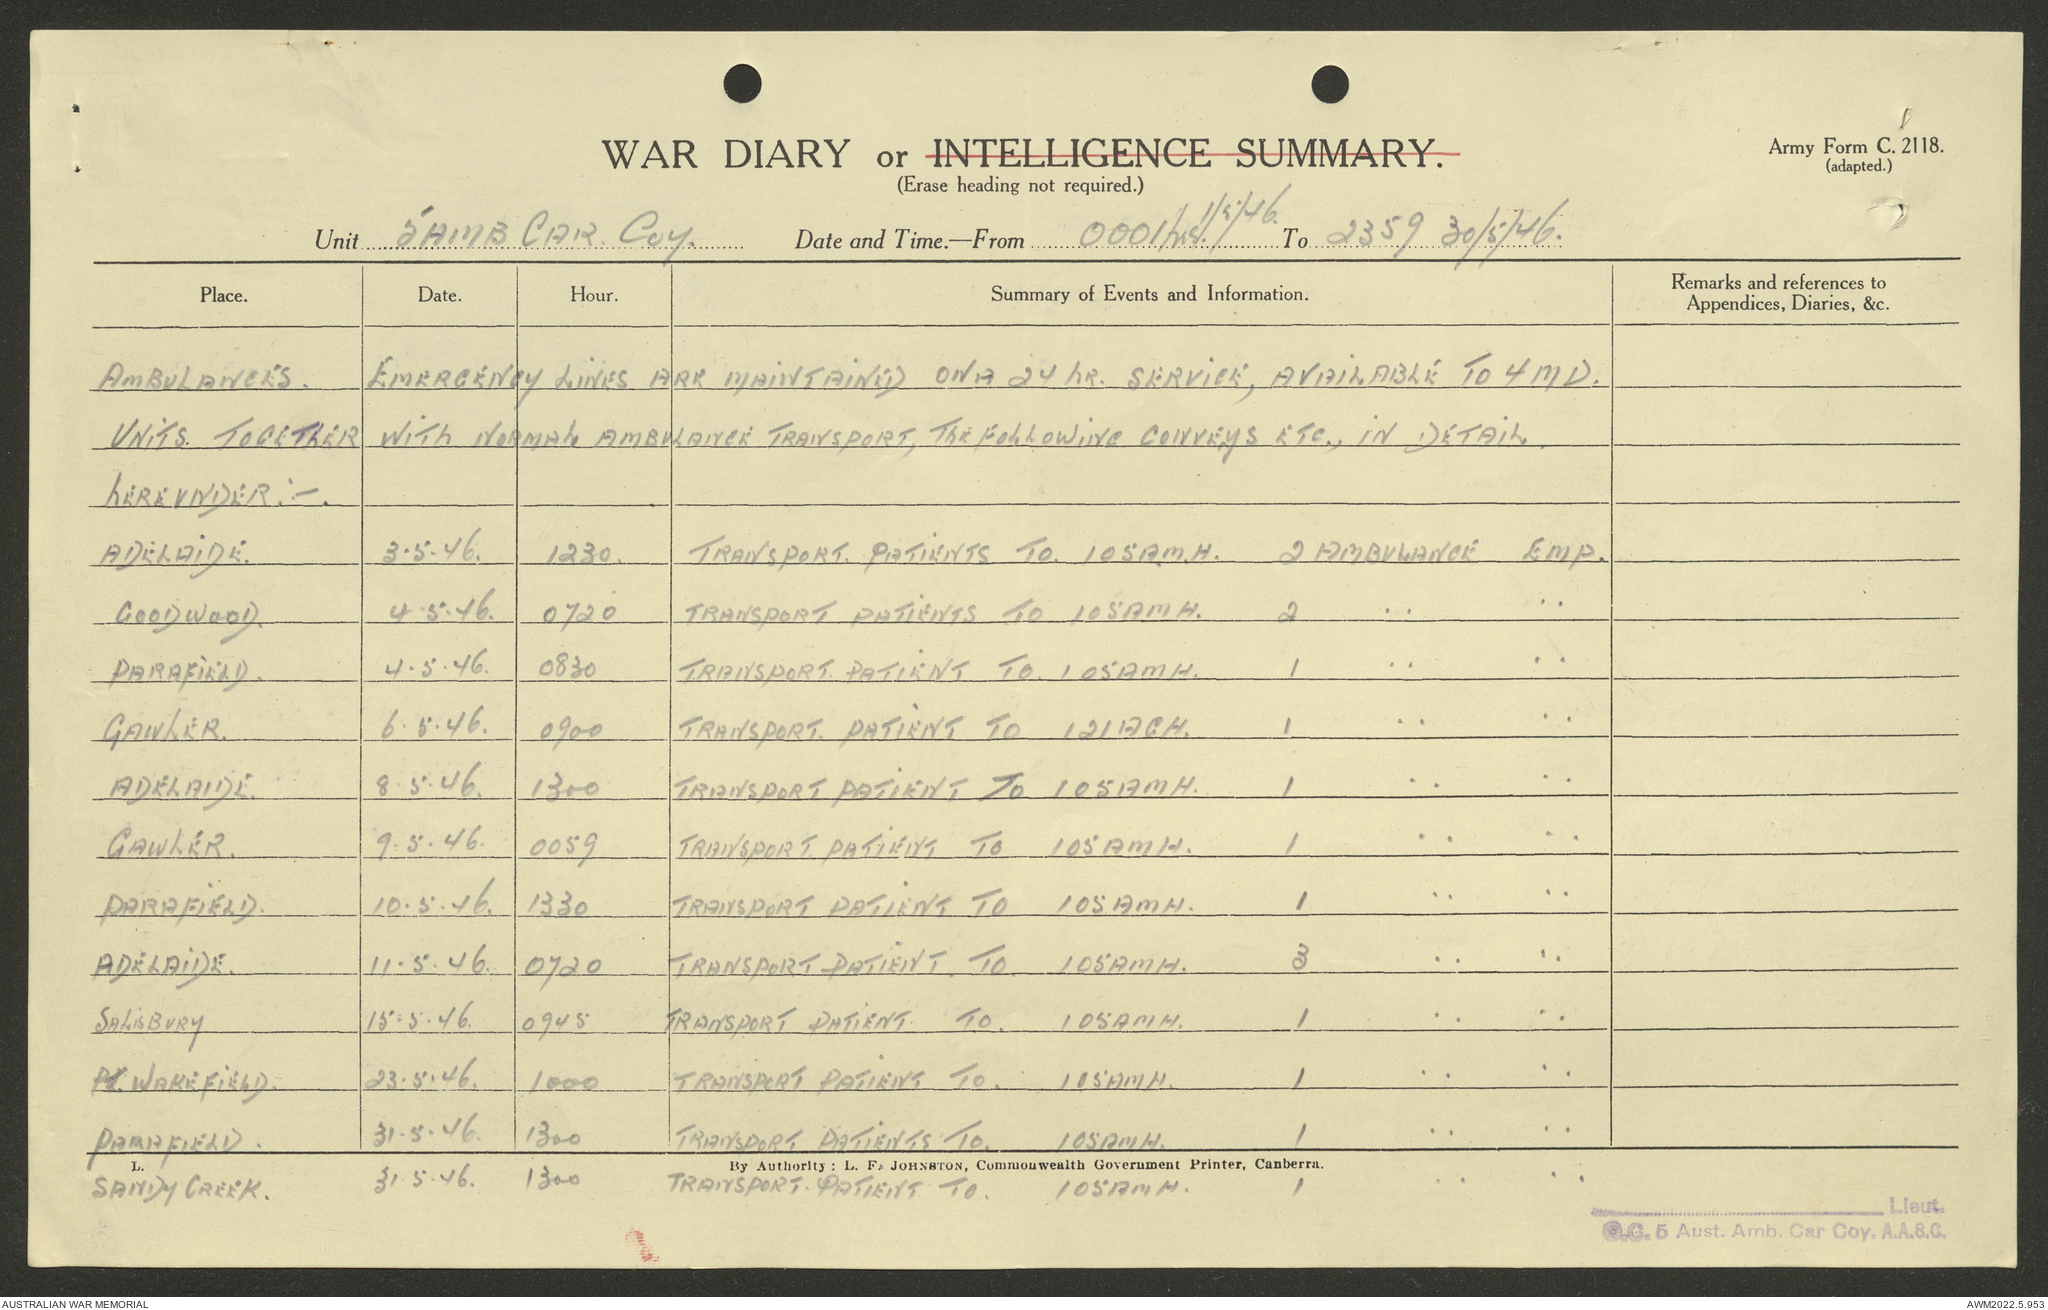 WAR DIARY or INTELLIGENCE SUMMARY.
Army Form C. 2118.
(adapted.)
(Erase heading not required.)
Unit 5 AMB CAR. Coy. Date and Time.—From 0001 hrs. 1/5/46. To 2359 30/5/46.
Place. Date. Hour. Summary of Events and Information. Remarks and references to Appendices, Diaries, &c.
AMBULANCES. EMERGENCY LINES ARE MAINTAINED ON A 24 hr. SERVICE, AVAILABLE TO 4 MD.
UNITS TOGETHER WITH NORMAL AMBULANCE TRANSPORT, THE FOLLOWING CONVEYS ETC., IN DETAIL
HEREUNDER:-.
ADELAIDE. 3.5.46. 1230. TRANSPORT. PATIENTS TO. 105 A.M.H. 2 AMBULANCE EMP.
GOODWOOD. 4.5.46. 0720 TRANSPORT PATIENTS TO 105 AMH. 2 " "
PARAFIELD. 4.5.46. 0830 TRANSPORT. PATIENT TO. 105 AMH. 1 " "
GAWLER. 6.5.46. 0900 TRANSPORT. PATIENT TO 121 ACH. 1 " "
ADELAIDE. 8.5.46. 1300 TRANSPORT PATIENT TO 105 AMH. 1 " "
GAWLER. 9.5.46. 0059 TRANSPORT. PATIENT TO 105 AMH. 1 " "
PARAFIELD. 10.5.46. 1330 TRANSPORT PATIENT TO 105 AMH. 1 " "
ADELAIDE. 11.5.46. 0720 TRANSPORT PATIENT. TO 105 AMH. 3 " "
SALISBURY 15.5.46. 0945 TRANSPORT PATIENT. TO. 105 AMH. 1 " "
Pt. WAKEFIELD. 23.5.46. 1000 TRANSPORT PATIENT TO. 105 AMH. 1 " "
PARAFIELD. 31.5.46. 1300 TRANSPORT PATIENTS TO. 105 AMH. 1 " "
L. By Authority: L. F. JOHNSTON, Commonwealth Government Printer, Canberra.
SANDY CREEK. 31.5.46. 1300 TRANSPORT. PATIENT TO. 105 AMH. 1 " "
Lieut.
O.C. 5 Aust. Amb. Car Coy. A.A.S.C.
2
AUSTRALIAN WAR MEMORIAL
AWM2022.5.953